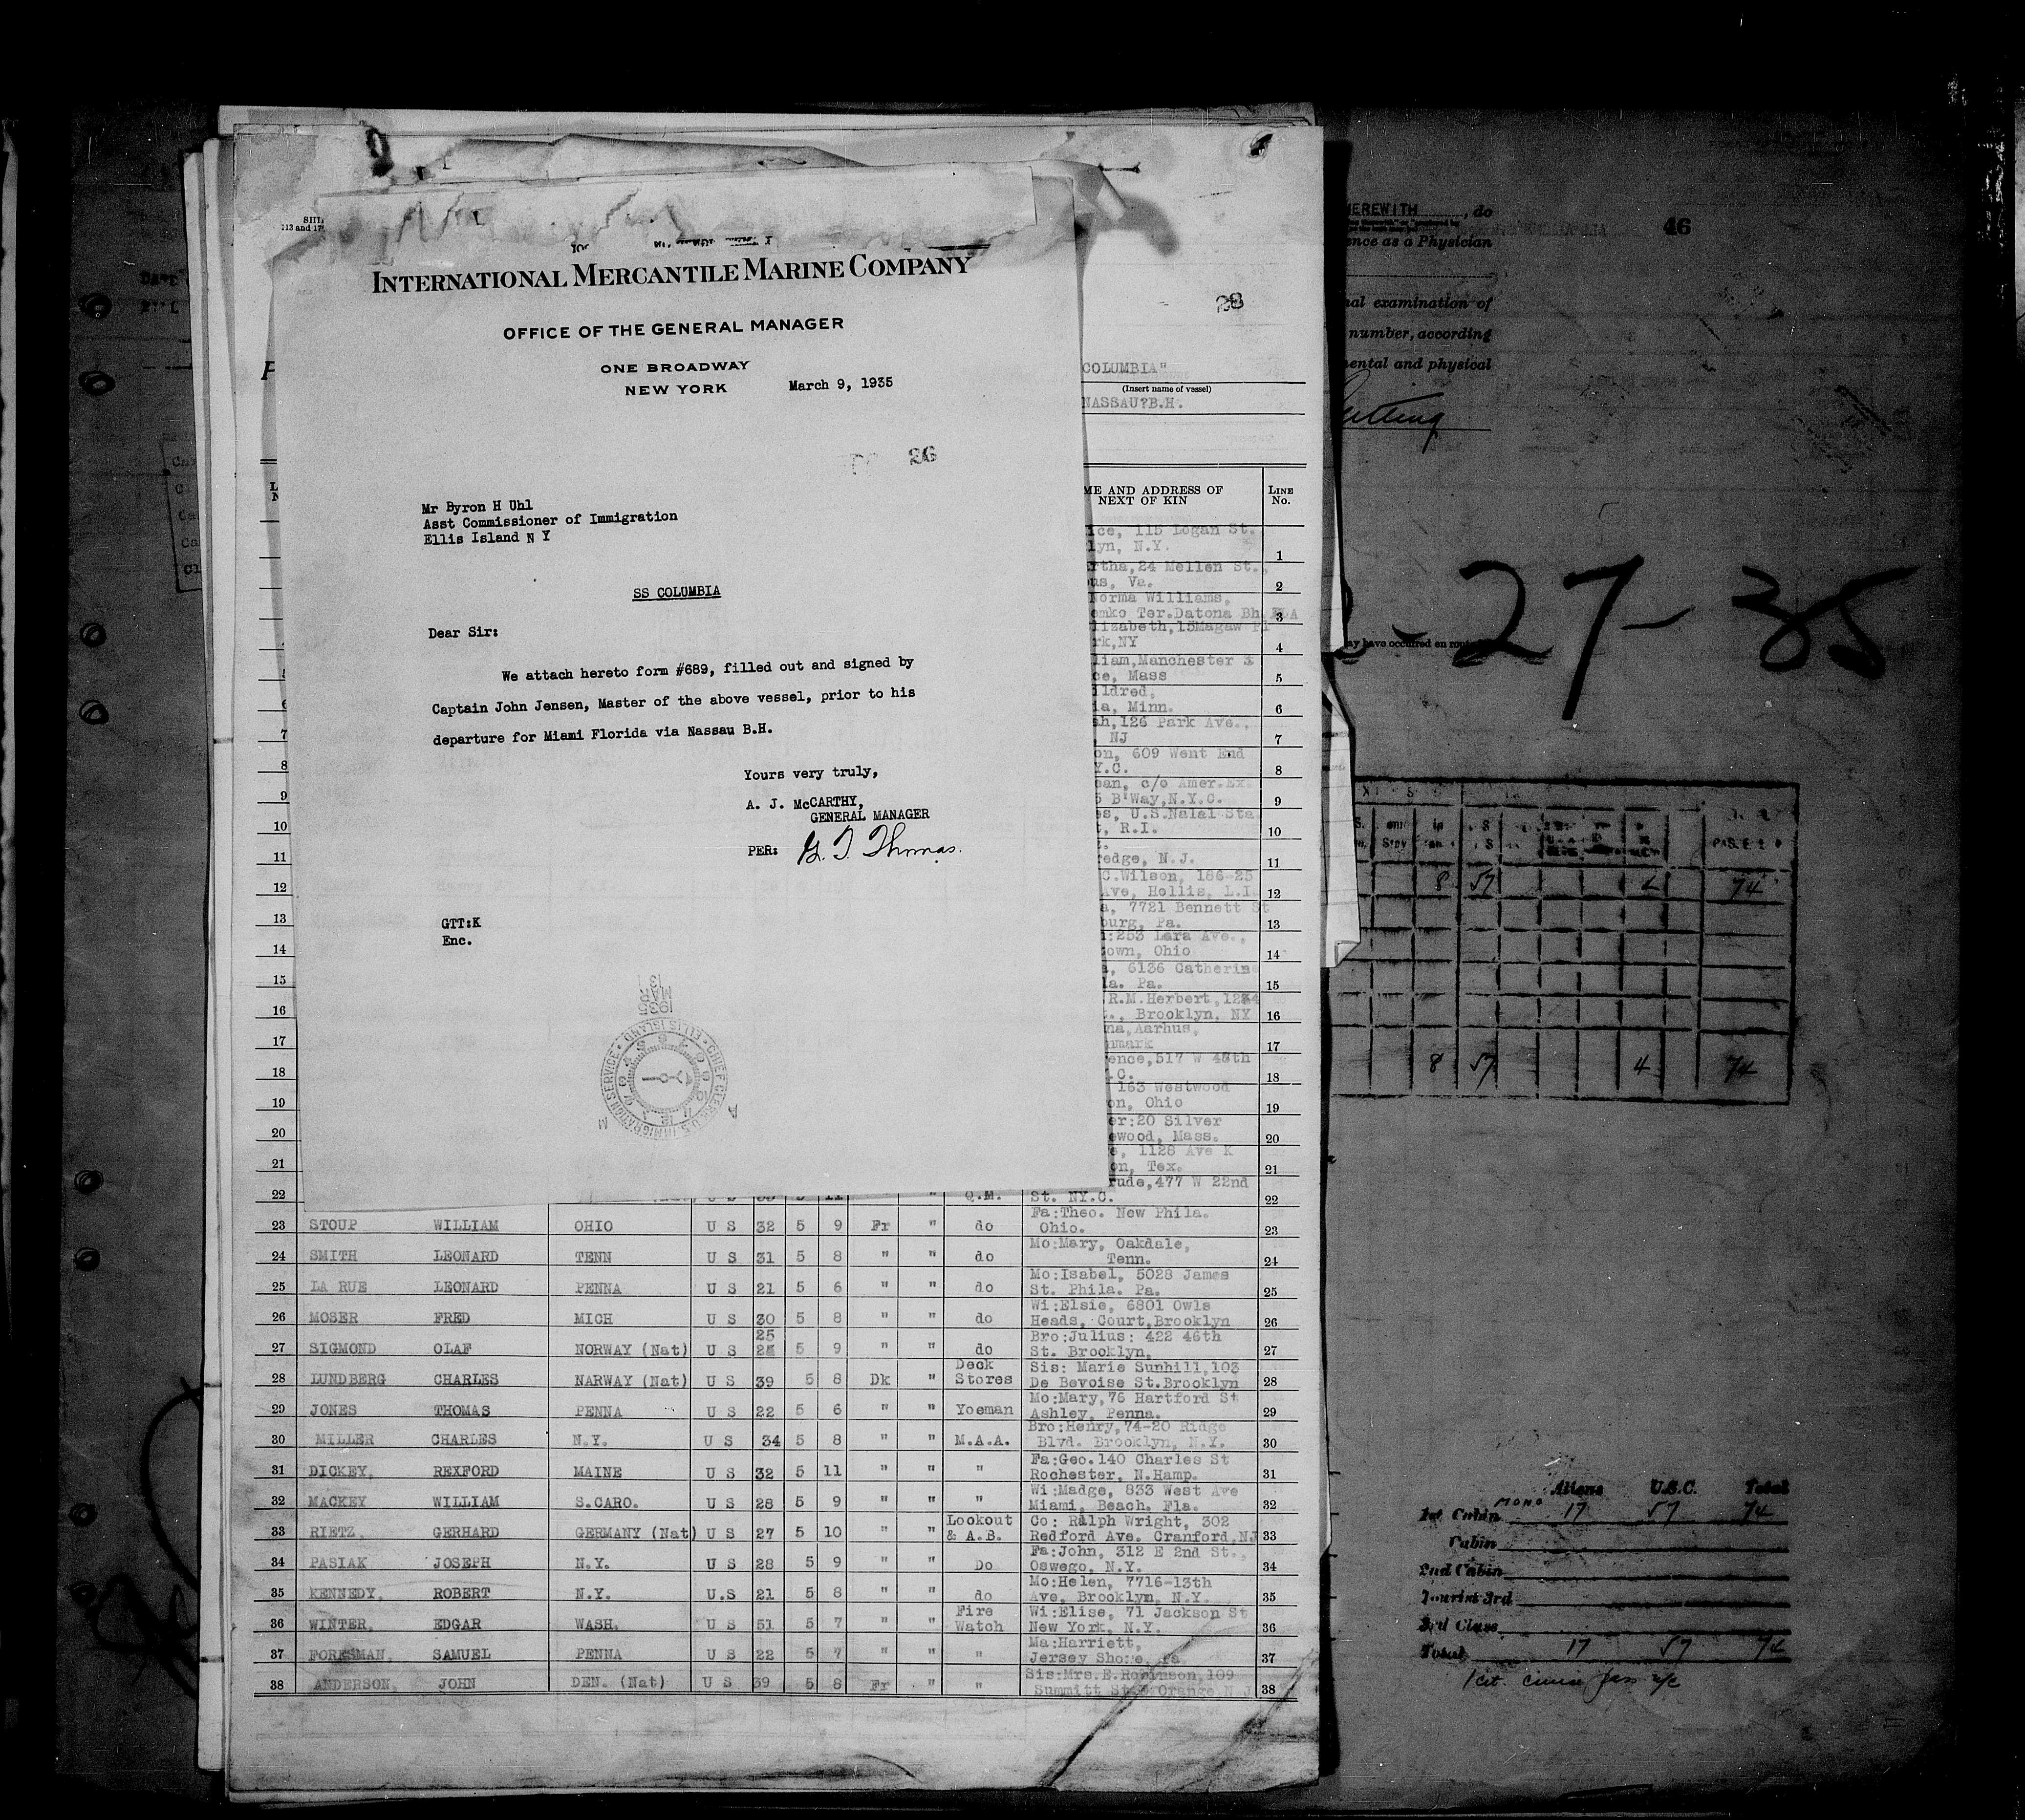 INTERNATIONAL MERCANTILE MARINE COMPANY
OFFICE OF THE GENERAL MANAGER
ONE BROADWAY
NEW YORK
March 9, 1935
26
Mr Byron H Uhl
Asst Commissioner of Immigration
Ellis Island N Y
SS COLUMBIA
Dear Sir:
We attach hereto form #689, filled out and signed by
Captain John Jensen, Master of the above vessel, prior to his
departure for Miami Florida via Nassau B.H.
Yours very truly,
A. J. McCARTHY,
GENERAL MANAGER
PER: G. T. Thomas.
GTT:K
Enc.
1935 MAR 13
CHIEF CLERK U.S. IMMIGRATION SERVICE ELLIS ISLAND
28
COLUMBIA"
(Insert name of vessel)
NASSAU?B.H.
ME AND ADDRESS OF NEXT OF KIN LINE No.
ice, 115 Logan St.
lyn, N.Y. 1
rtha, 24 Mellen St.,
us, Va. 2
Norma Williams,
emko Ter. Datona Bh. 3
lizabeth, 15Magaw Pl
rk, NY 4
liam, Manchester
ce, Mass 5
ildred,
ia, Minn. 6
h, 126 Park Ave.,
NJ 7
on, 609 Went End
Y.C. 8
an, c/o Amer.Ex.
5 B'Way, N.Y.C. 9
es, U.S.Nalal Sta.
t, R.I. 10
edge, N.J. 11
C.Wilson, 186-25
Ave, Hollis, L.I. 12
a, 7721 Bennett St
burg, Pa. 13
:253 Lara Ave.,
town, Ohio 14
a, 6136 Catherin
la. Pa. 15
R.M.Herbert,
., Brooklyn, NY 16
na, Aarhus,
nmark 17
ence, 517 W 48th
.C. 18
163 Westwood
on, Ohio 19
er:20 Silver
ewood, Mass. 20
e, 1128 Ave K
on, Tex. 21
rude, 477 W 22nd
22 Q.M. St. NY.C. 22
Fa:Theo. New Phila.
23 STOUP WILLIAM OHIO U S 32 5 9 Fr " do Ohio. 23
Mo:Mary, Oakdale,
24 SMITH LEONARD TENN U S 31 5 8 " " do Tenn. 24
Mo:Isabel, 5028 James
25 LA RUE LEONARD PENNA U S 21 5 6 " " do St. Phila. Pa. 25
Wi:Elsie, 6801 Owls
26 MOSER FRED MICH U S 30 5 8 " " do Heads, Court, Brooklyn 26
25 Bro:Julius: 422 46th
27 SIGMOND OLAF NORWAY (Nat) U S 5 9 " " do St. Brooklyn, 27
Deck Sis: Marie Sunhill, 103
28 LUNDBERG CHARLES NARWAY (Nat) U S 39 5 8 Dk " Stores De Bevoise St. Brooklyn 28
Mo:Mary, 76 Hartford St
29 JONES THOMAS PENNA U S 22 5 6 " " Yoeman Ashley, Penna. 29
Bro:Henry, 74-20 Ridge
30 MILLER CHARLES N.Y. U S 34 5 8 " " M.A.A. Blvd. Brooklyn, N.Y. 30
Fa:Geo. 140 Charles St
31 DICKEY, REXFORD MAINE U S 32 5 11 " " " Rochester, N.Hamp. 31
Wi:Madge, 833 West Ave
32 MACKEY WILLIAM S.CARO. U S 28 5 9 " " " Miami, Beach, Fla. 32
Lookout Co: Ralph Wright, 302
33 RIETZ, GERHARD GERMANY (Nat) U S 27 5 10 " " & A.B. Redford Ave. Cranford, NJ 33
Fa:John, 312 E 2nd St.,
34 PASIAK JOSEPH N.Y. U S 28 5 9 " " Do Oswego, N.Y. 34
Mo:Helen, 7716-13th
35 KENNEDY, ROBERT N.Y. U.S 21 5 8 " " do Ave, Brooklyn, N.Y. 35
Fire Wi:Elise, 71 Jackson St
36 WINTER, EDGAR WASH. U S 51 5 7 " " Watch New York, N.Y. 36
Ma:Harriett,
37 FORESMAN, SAMUEL PENNA U S 22 5 7 " " " Jersey Shore, Pa 37
Sis:Mrs.E.Robinson, 109
38 ANDERSON, JOHN DEN. (Nat) U S 39 5 8 Fr " " Summitt St. Orange N J 38
HEREWITH, do
46
ence as a Physician
nal examination of
number, according
mental and physical
27-35
may have occurred en rout
8 57 74
8 57 4 74
Aliens U.S.C. Total
1st Cabin MONO 17 57 74
Cabin
2nd Cabin
Tourist 3rd
3rd Class
Total 17 57 74